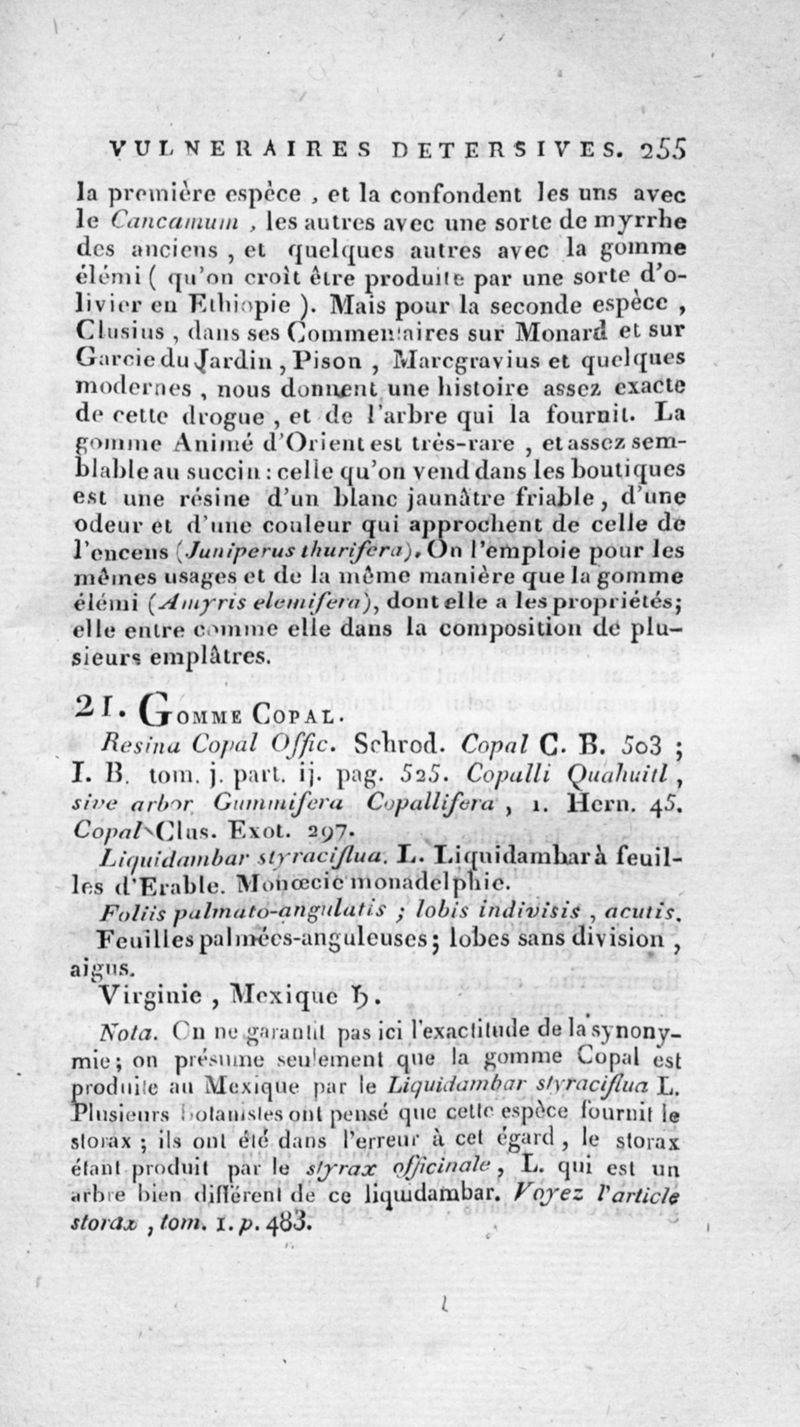 VULNERAIRES DETERSIVES. 255
la première espèce , et la confondent les uns avec
le Cancamum , les autres avec une sorte de myrrhe
des anciens , et quelques autres avec la gomme
élémi ( qu'on croît être produite par une sorte d'o-
livier en Ethiopie ). Mais pour la seconde espèce ,
Clusius , dans ses Commentaires sur Monard et sur
Garcie du Jardin , Pison , Marcgravius et quelques
modernes , nous donnent une histoire assez exacte
de cette drogue , et de l'arbre qui la fournit. La
gomme Animé d'Orient est très-rare , et assez sem-
blable au succin : celle qu'on vend dans les boutiques
est une résine d'un blanc jaunâtre friable , d'une
odeur et d'une couleur qui approchent de celle de
l'encens (Juniperus thurifera). On l'emploie pour les
mêmes usages et de la même manière que la gomme
élémi (Amyris elemifera), dont elle a les propriétés;
elle entre comme elle dans la composition de plu-
sieurs emplâtres.
21. GOMME COPAL.
Resina Copal Offic. Schrod. Copal C. B. 503 ;
I. B. tom. j. part. ij. pag. 525. Copalli Quahuitl ,
sive arbor Gummifera Copallifera , 1. Hern. 45.
Copal Clus. Exot. 297.
Liquidambar styraciflua. L. Liquidambar à feuil-
les d'Erable. Monœcie monadelphie.
Foliis palmato-angulatis ; lobis indivisis , acutis.
Feuilles palmées-anguleuses; lobes sans division ,
aigus.
Virginie , Mexique ♄.
Nota. On ne garantit pas ici l'exactitude de la synony-
mie; on présume seulement que la gomme Copal est
produite au Mexique par le Liquidambar styraciflua L.
Plusieurs botanistes ont pensé que cette espèce fournit le
storax ; ils ont été dans l'erreur à cet égard , le storax
étant produit par le styrax officinale , L. qui est un
arbre bien différent de ce liquidambar. Voyez l'article
storax , tom. 1. p. 483.